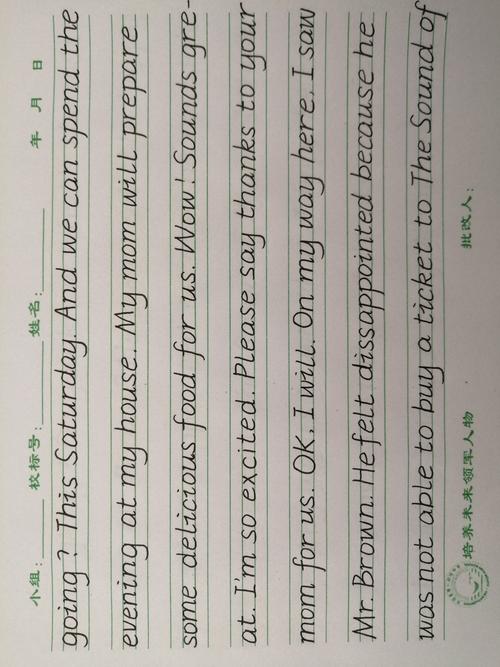 小组: 校标号: 姓名: 年 月 日
going? This Saturday. And we can spend the
evening at my house. My mom will prepare
some delicious food for us. Wow! Sounds gre-
at. I'm so excited. Please say thanks to your
mom for us. OK, I will. On my way here, I saw
Mr. Brown. He felt dissappointed because he
was not able to buy a ticket to The Sound of
培养未来领军人物 批改人: